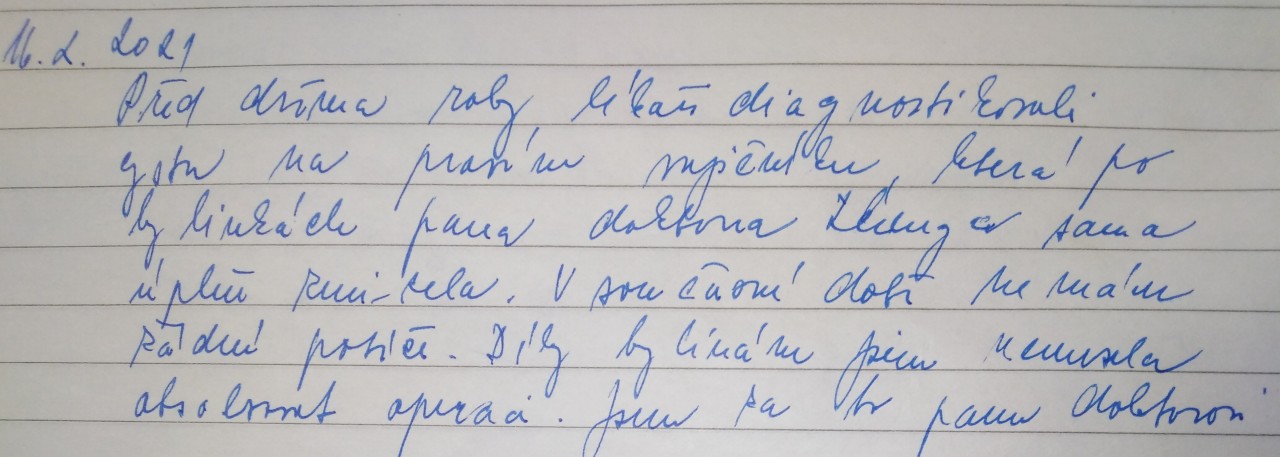 16. 2. 2021
Před dvěma roky lékaři diagnostikovali
cystu na pravém vaječníku, která po
bylinkách pana doktora sama
úplně zmizela. V současné době nemám
žádné potíže. Díky bylinám jsem nemusela
absolvovat operaci. Jsem za to panu doktorovi